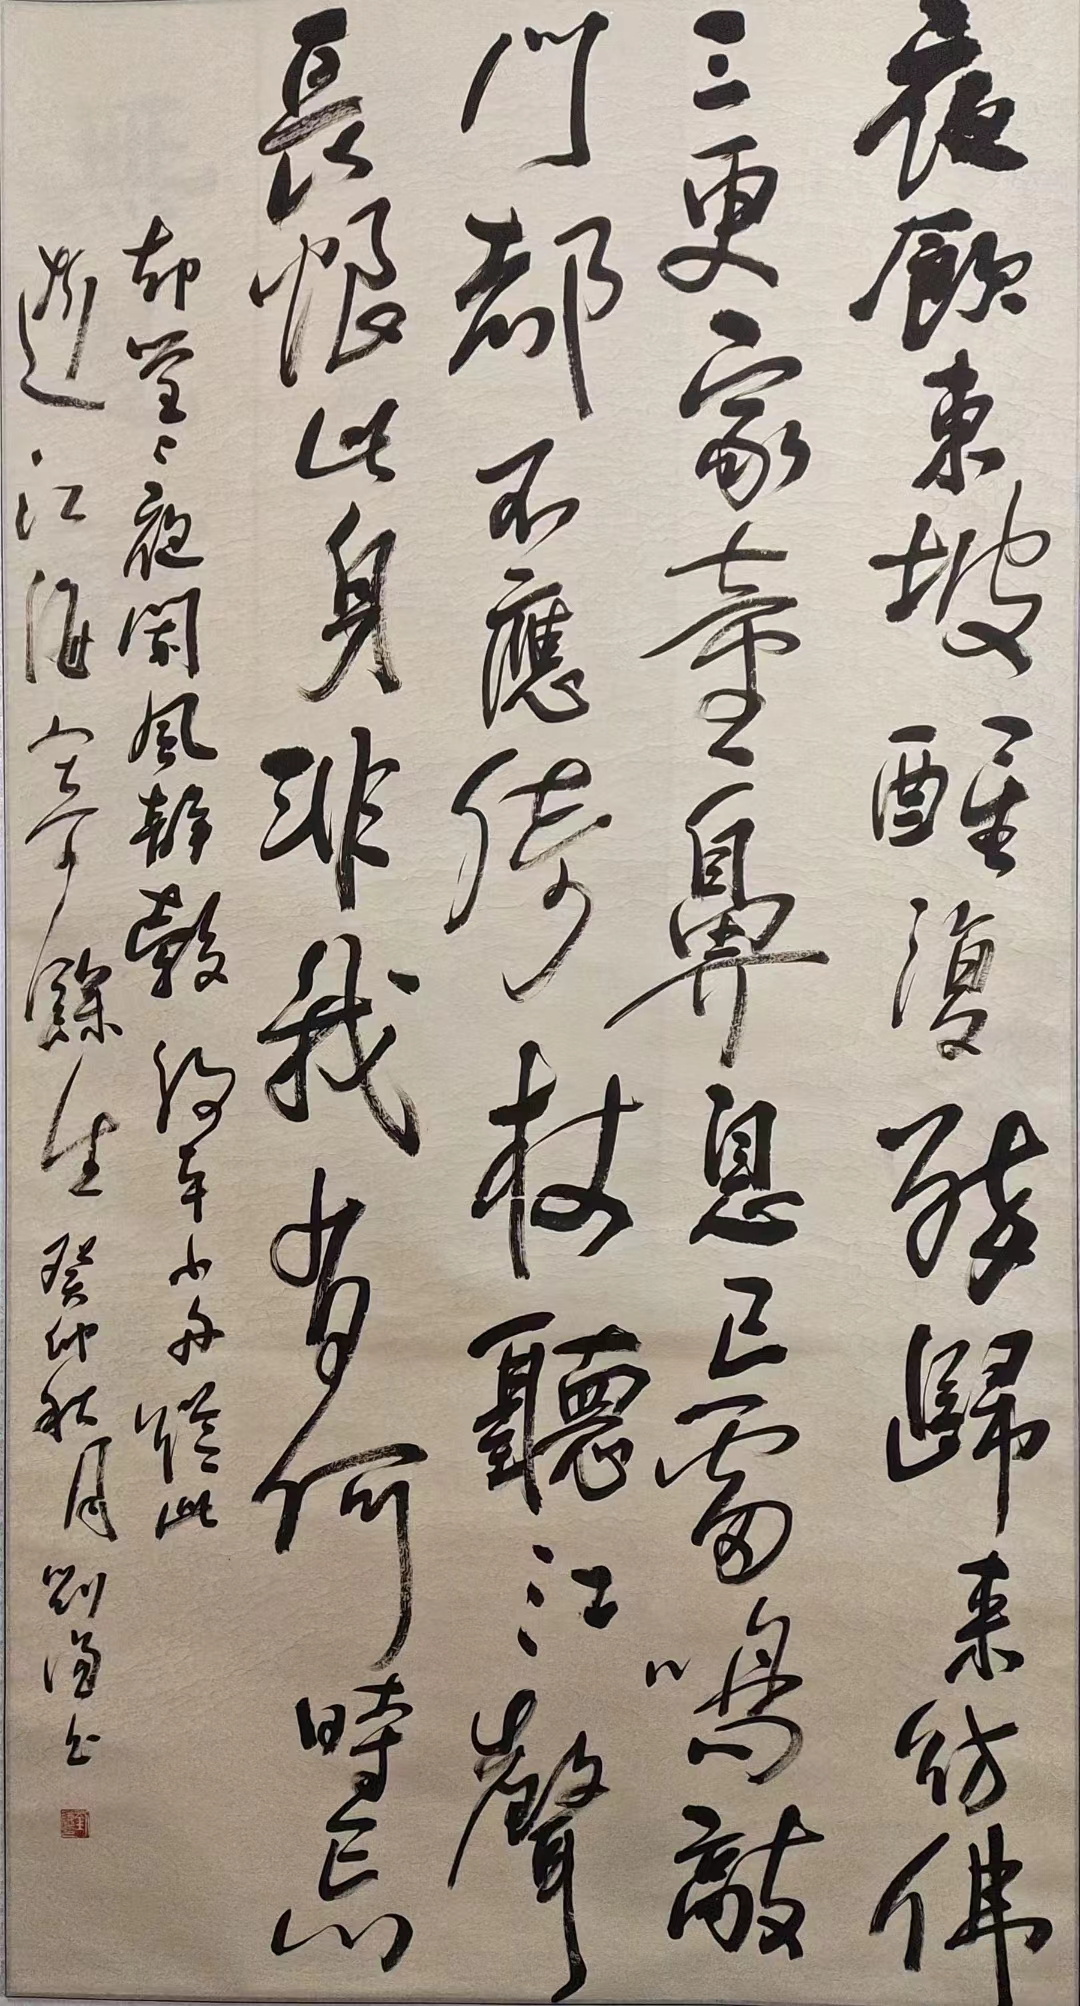 夜飲東坡醒復醉歸來彷佛
三更家童鼻息已雷鳴敲
門都不應倚杖聽江聲
長恨此身非我有何時忘
却營々夜闌風靜縠紋平小舟從此
逝江海寄餘生癸卯秋月劉書